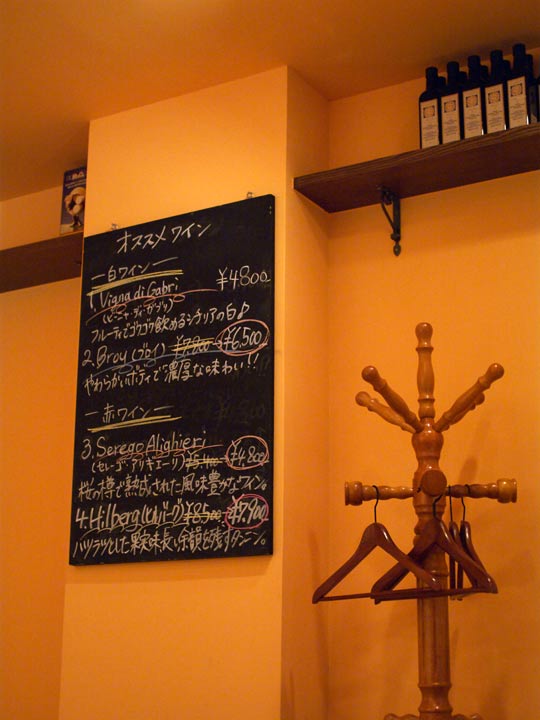 オススメワイン
白ワイン
1. Vigna di Gabri ¥4800
(ビーニャ・ディ・ガブリ)
フルーティでゴクゴク飲めるシチリアの白♪
2. Broy (ブロイ) ¥7,800→¥6,500
やわらかいボディで濃厚な味わい!!
赤ワイン
3. Serego Alighieri
(セレーゴ・アリギエーリ) ¥5,400→¥4,800
桜の樽で熟成された風味豊かなワイン。
4. Hilberg (ヒルバーグ) ¥8,500→¥7,900
ハツラツとした果実味長い余韻を残すタンニン。